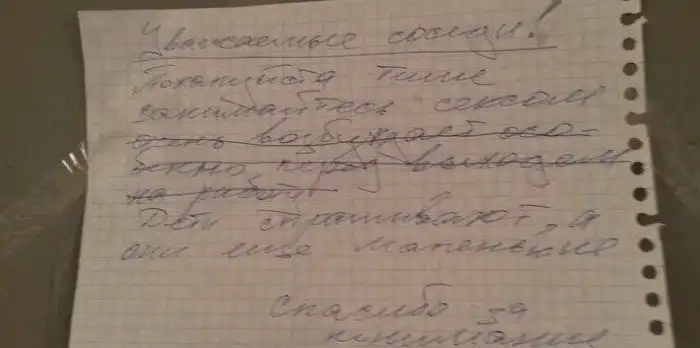 Уважаемые соседи!
Пожалуйста тише
занимайтесь сексом
очень возбуждает осо-
бенно перед выходом
на работу.
Дети спрашивают, а
они еще маленькие
Спасибо за
понимание